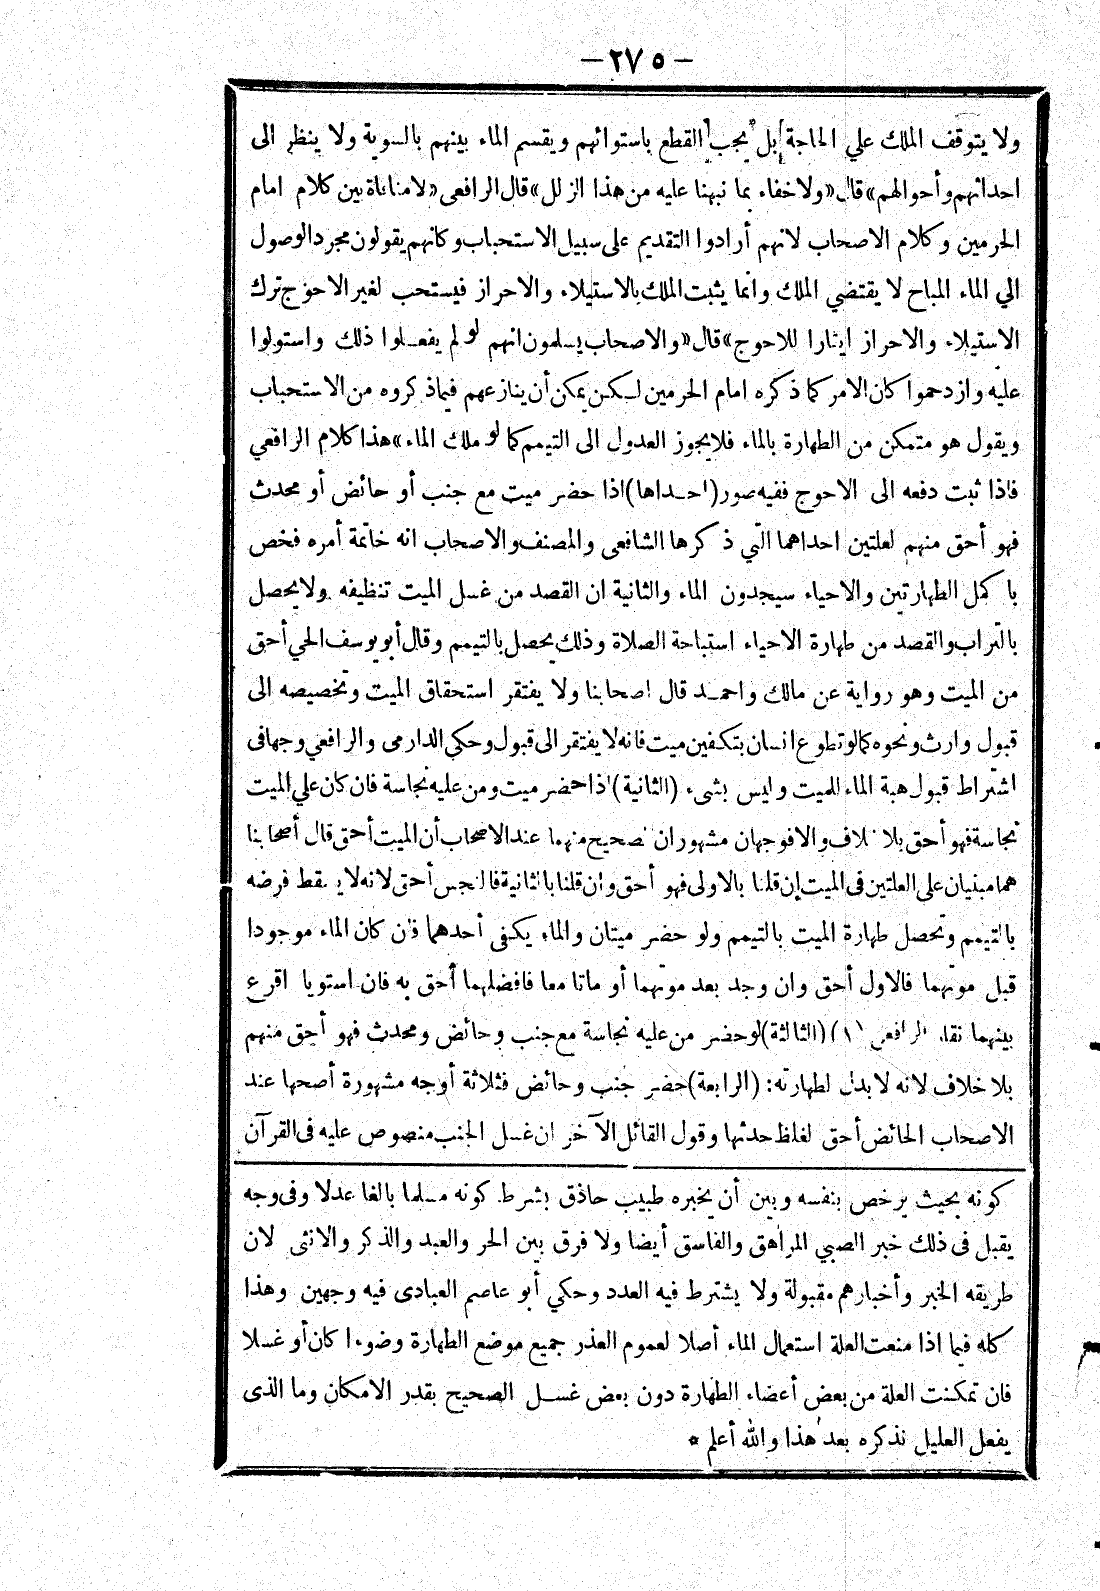 — ٢٧٥ —
ولا يتوقف الملك علي الحاجة بل يجب القطع باستوائهم ويقسم الماء بينهم بالسوية ولا ينظر الى
احداثهم وأحوالهم» قال «ولا خفاء بما نبهنا عليه من هذا الزلل» قال الرافعى «لا منافاة بين كلام امام
الحرمين وكلام الاصحاب لانهم أرادوا التقديم على سبيل الاستحباب وكانهم يقولون مجرد الوصول
الي الماء المباح لا يقتضي الملك وانما يثبت الملك بالاستيلاء والاحراز فيستحب لغير الاحوج ترك
الاستيلاء والاحراز ايثارا للاحوج» قال «والاصحاب يسلمون انهم لو لم يفعلوا ذلك واستولوا
عليه وازدحموا كان الامر كما ذكره امام الحرمين لكن يمكن أن ينازعهم فيما ذكروه من الاستحباب
ويقول هو متمكن من الطهارة بالماء فلا يجوز العدول الى التيمم كما لو ملك الماء» هذا كلام الرافعي
فاذا ثبت دفعه الى الاحوج ففيه صور (احداها) اذا حضر ميت مع جنب أو حائض أو محدث
فهو أحق منهم لعلتين احداهما التي ذكرها الشافعى والمصنف والاصحاب انه خاتمة أمره فخص
باكمل الطهارتين والاحياء سيجدون الماء والثانية ان القصد من غسل الميت تنظيفه ولا يحصل
بالتراب والقصد من طهارة الاحياء استباحة الصلاة وذلك يحصل بالتيمم وقال أبو يوسف الحي أحق
من الميت وهو رواية عن مالك واحمد قال اصحابنا ولا يفتقر استحقاق الميت وتخصيصه الى
قبول وارث ونحوه كما لو تطوع انسان بتكفين ميت فانه لا يفتقر الى قبول وحكى الدارمى والرافعي وجها فى
اشتراط قبول هبة الماء للميت وليس بشىء (الثانية) اذا حضر ميت ومن عليه نجاسة فان كان علي الميت
نجاسة فهو أحق بلا خلاف والا فوجهان مشهوران الصحيح منهما عند الاصحاب أن الميت أحق قال أصحابنا
هما مبنيان على العلتين فى الميت إن قلنا بالاولى فهو أحق وان قلنا بالثانية فالنجس أحق لانه لا يسقط فرضه
بالتيمم وتحصل طهارة الميت بالتيمم ولو حضر ميتان والماء يكفى أحدهما فان كان الماء موجودا
قبل موتهما فالاول أحق وان وجد بعد موتهما أو ماتا معا فافضلهما أحق به فان استويا اقرع
بينهما نقله الرافعى (١) (الثالثة) لو حضر من عليه نجاسة مع جنب وحائض ومحدث فهو أحق منهم
بلا خلاف لانه لا بدل لطهارته: (الرابعة) حضر جنب وحائض فثلاثة أوجه مشهورة أصحها عند
الاصحاب الحائض أحق لغلظ حدثها وقول القائل الآخر ان غسل الجنب منصوص عليه فى القرآن
كونه بحيث يرخص بنفسه وبين أن يخبره طبيب حاذق بشرط كونه مسلما بالغا عدلا وفى وجه
يقبل فى ذلك خبر الصبي المراهق والفاسق أيضا ولا فرق بين الحر والعبد والذكر والانثى لان
طريقه الخبر وأخبارهم مقبولة ولا يشترط فيه العدد وحكي أبو عاصم العبادى فيه وجهين وهذا
كله فيما اذا منعت العلة استعمال الماء أصلا لعموم العذر جميع موضع الطهارة وضوءا كان أو غسلا
فان تمكنت العلة من بعض أعضاء الطهارة دون بعض غسل الصحيح بقدر الامكان وما الذى
يفعل العليل نذكره بعد هذا والله أعلم *